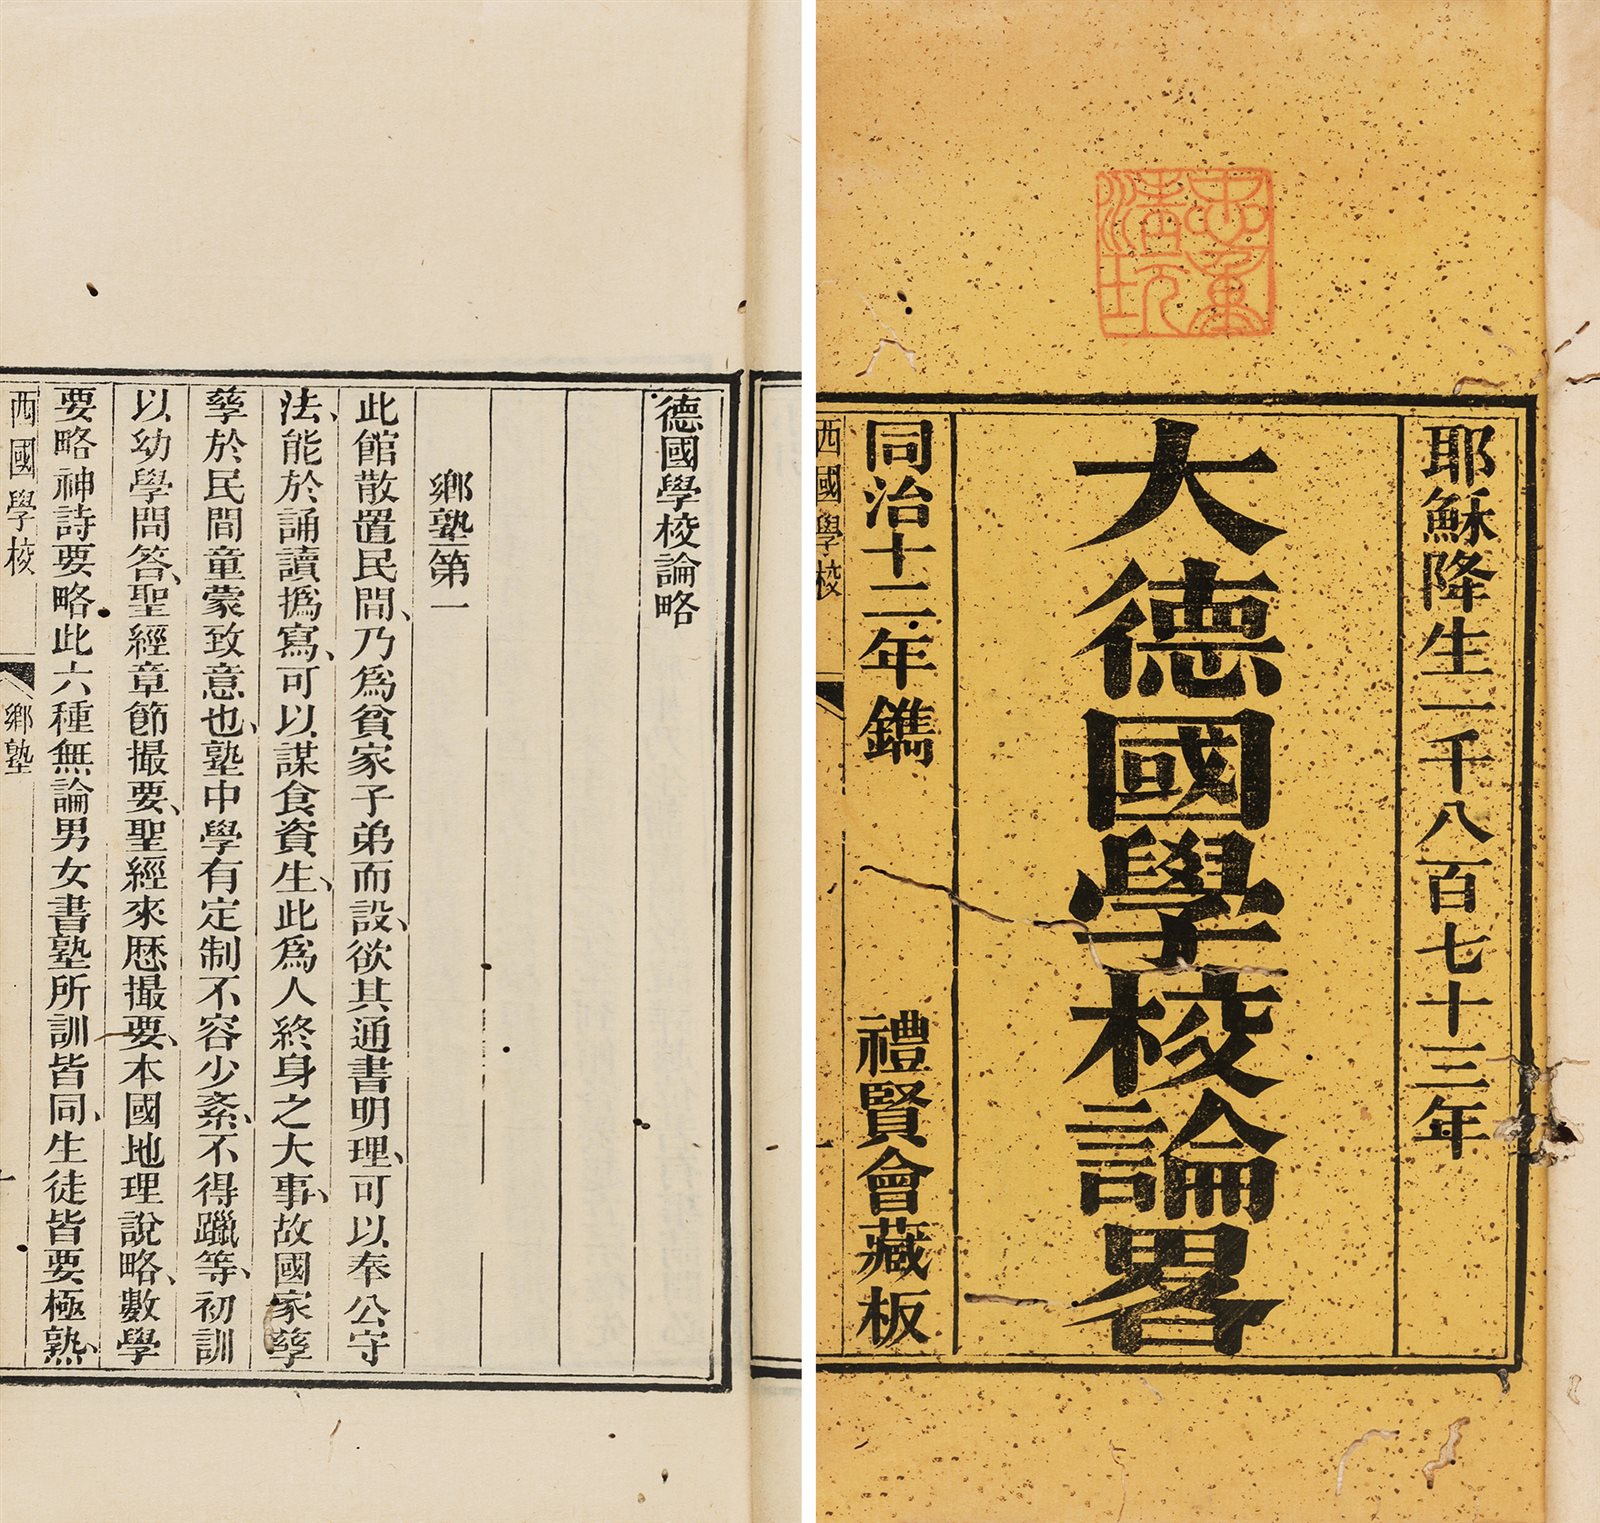 耶穌降生一千八百七十三年
大德國學校論畧
同治十二年鐫
禮賢會藏板
西國學校
德國學校論略
鄉塾第一
此館散置民間、乃爲貧家子弟而設、欲其通書明理、可以奉公守
法、能於誦讀撝寫、可以謀食資生、此爲人終身之大事、故國家孳
孳於民間童蒙致意也、塾中學有定制不容少紊、不得躐等、初訓
以幼學問答、聖經章節撮要、聖經來厯撮要、本國地理說略、數學
要略神詩要略此六種無論男女書塾所訓皆同、生徒皆要極熟、
西國學校
鄉塾